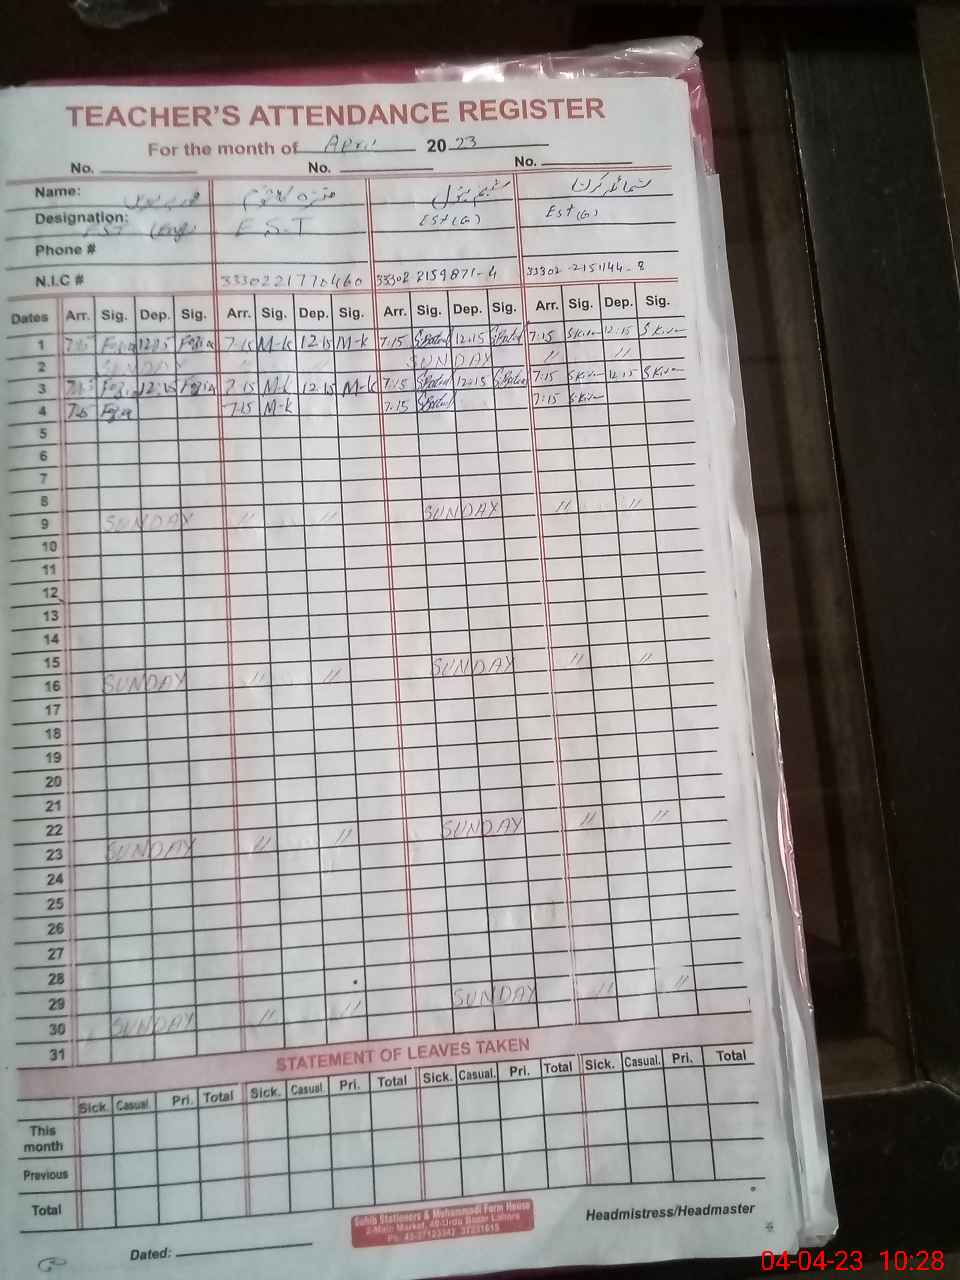 TEACHER'S ATTENDANCE REGISTER
For the month of April 20 23
No. No. No.
Name:
Designation: EST (Eng) E S.T EST (G) EST (G)
Phone #
N.I.C # 3330221770460 33302-2159871-4 33302-2151144-8
Dates Arr. Sig. Dep. Sig. Arr. Sig. Dep. Sig. Arr. Sig. Dep. Sig. Arr. Sig. Dep. Sig.
1 7:15 Fozia 12:15 Fozia 7:15 M-k 12:15 M-k 7:15 12:15 7:15 S Kiran 12:15 S Kiran
2 SUNDAY " " SUNDAY " "
3 7:15 Fozia 12:15 Fozia 7:15 M-k 12:15 M-k 7:15 12:15 7:15 S Kiran 12:15 S Kiran
4 7:15 Fozia 7:15 M-k 7:15 7:15 S Kiran
5
6
7
8
9 SUNDAY " " SUNDAY " "
10
11
12
13
14
15
16 SUNDAY " " SUNDAY " "
17
18
19
20
21
22
23 SUNDAY " " SUNDAY " "
24
25
26
27
28
29
30 SUNDAY " " SUNDAY " "
31
STATEMENT OF LEAVES TAKEN
Sick. Casual. Pri. Total Sick. Casual. Pri. Total Sick. Casual. Pri. Total Sick. Casual. Pri. Total
This month
Previous
Total
Sohib Stationers & Muhammadi Form House
2-Main Market, 40-Urdu Bazar Lahore
Headmistress/Headmaster
Dated:
04-04-23 10:28